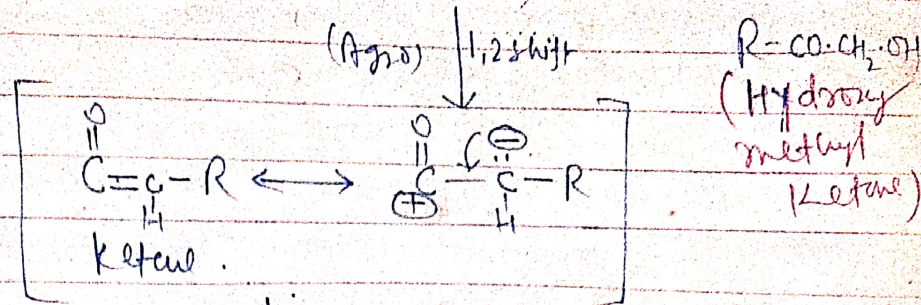 (Ag₂O) 1,2 shift
R-CO.CH₂.OH
(Hydroxy
methyl
Ketone)
O O ⊖
C=C-R ⟷ C-C-R
H ⊕ H
Ketene.